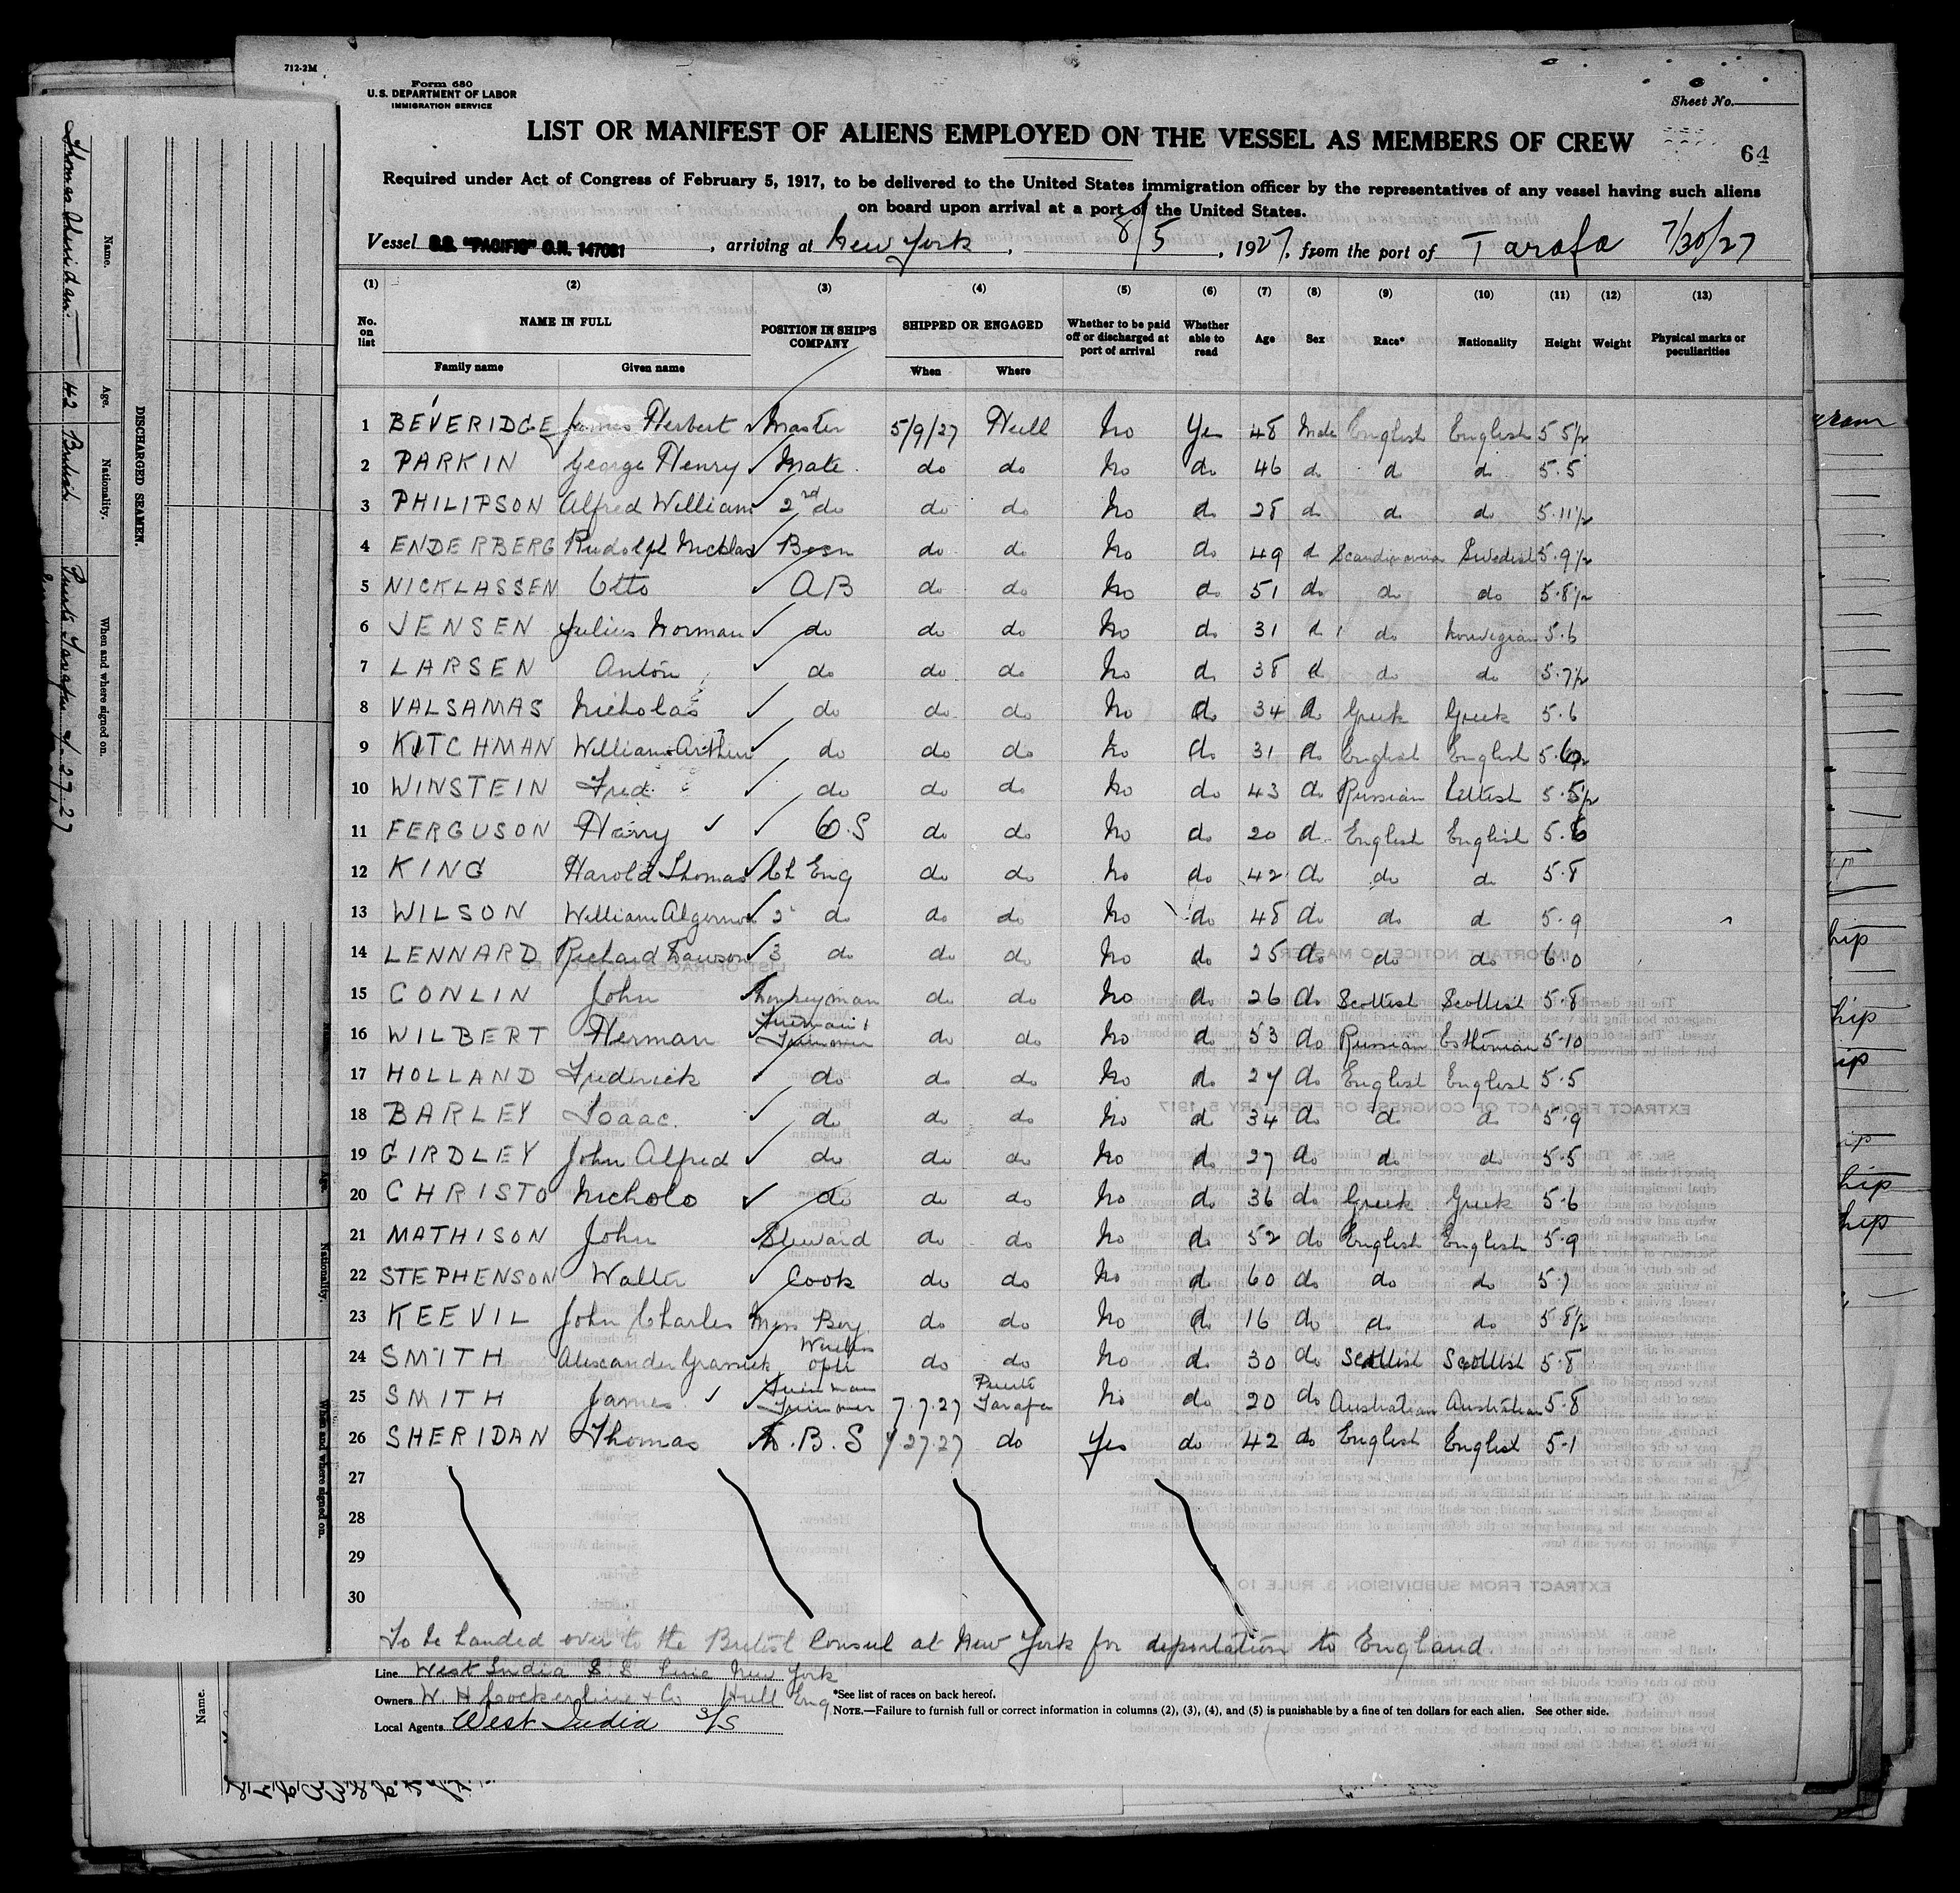 712-2M
Form 680
U.S. DEPARTMENT OF LABOR
IMMIGRATION SERVICE
Sheet No.
LIST OR MANIFEST OF ALIENS EMPLOYED ON THE VESSEL AS MEMBERS OF CREW
64
Required under Act of Congress of February 5, 1917, to be delivered to the United States immigration officer by the representatives of any vessel having such aliens
on board upon arrival at a port of the United States.
Vessel S.S. "PACIFIC" O.N. 147081, arriving at New York, 8/5, 1927, from the port of Tarafa 7/30/27
(1) (2) (3) (4) (5) (6) (7) (8) (9) (10) (11) (12) (13)
No. on list NAME IN FULL POSITION IN SHIP'S COMPANY SHIPPED OR ENGAGED Whether to be paid off or discharged at port of arrival Whether able to read Age Sex Race* Nationality Height Weight Physical marks or peculiarities
Family name Given name When Where
1 BEVERIDGE James Herbert Master 5/9/27 Hull No Yes 48 Male English English 5 5½
2 PARKIN George Henry Mate do do No do 46 d d d 5.5
3 PHILIPSON Alfred William 2nd do do do No do 28 d d do 5.11½
4 ENDERBERG Rudolph Nicklas Bosn do do No do 49 d Scandinavia Swedish 5.9½
5 NICKLASSEN Otto AB do do No do 51 do do do 5.8½
6 JENSEN Julius Norman do do do No do 31 d do Norwegian 5.6
7 LARSEN Anton do do do No d 38 d do do 5.7½
8 VALSAMAS Nicholas do do do No do 34 do Greek Greek 5.6
9 KITCHMAN William Arthur do do do No do 31 do English English 5.6½
10 WINSTEIN Fred do do do No do 43 do Russian Lettish 5.5½
11 FERGUSON Harry O.S do do No do 20 d English English 5.6
12 KING Harold Thomas Ch Eng do do No do 42 do do d 5.8
13 WILSON William Algernon 2 do do do No do 48 do do d 5.9
14 LENNARD Richard Dawson 3 do do do No do 25 do do do 6.0
15 CONLIN John Donkeyman do do No do 26 do Scottish Scottish 5.8
16 WILBERT Herman Fireman & Trimmer do do No do 53 do Russian Esthonian 5-10
17 HOLLAND Frederick do do do No do 27 do English English 5.5
18 BARLEY Isaac do do do No d 34 do d d 5.9
19 GIRDLEY John Alfred do do do No do 27 do do do 5.5
20 CHRISTO Nicholo do do do No do 36 do Greek Greek 5.6
21 MATHISON John Steward do do No do 52 do English English 5.9
22 STEPHENSON Walter Cook do do No d 60 do do do 5.7
23 KEEVIL John Charles Mess Boy do do No d 16 do do do 5.8½
24 SMITH Alexander Wireless Optr do do No d 30 do Scottish Scottish 5.8
25 SMITH James Fireman Trimmer 7.7.27 Puerto Tarafa No do 20 do Australian Australian 5.8
26 SHERIDAN Thomas D.B.S 7 27.27 do Yes do 42 do English English 5-1
27
28
29
30
To be handed over to the British Consul at New York for deportation to England.
Line West India S S Line New York
Owners W. H Cockerline & Co Hull Eng
Local Agents West India S/S
*See list of races on back hereof.
NOTE.—Failure to furnish full or correct information in columns (2), (3), (4), and (5) is punishable by a fine of ten dollars for each alien. See other side.
DISCHARGED SEAMEN.
Name. Age. Nationality. When and where signed on.
Thomas Sheridan 42 British Puerto Tarafa 7.27.27
Name. Age. Nationality. When and where signed on.
Name.
hip
hip
ip
ip
hip
hip